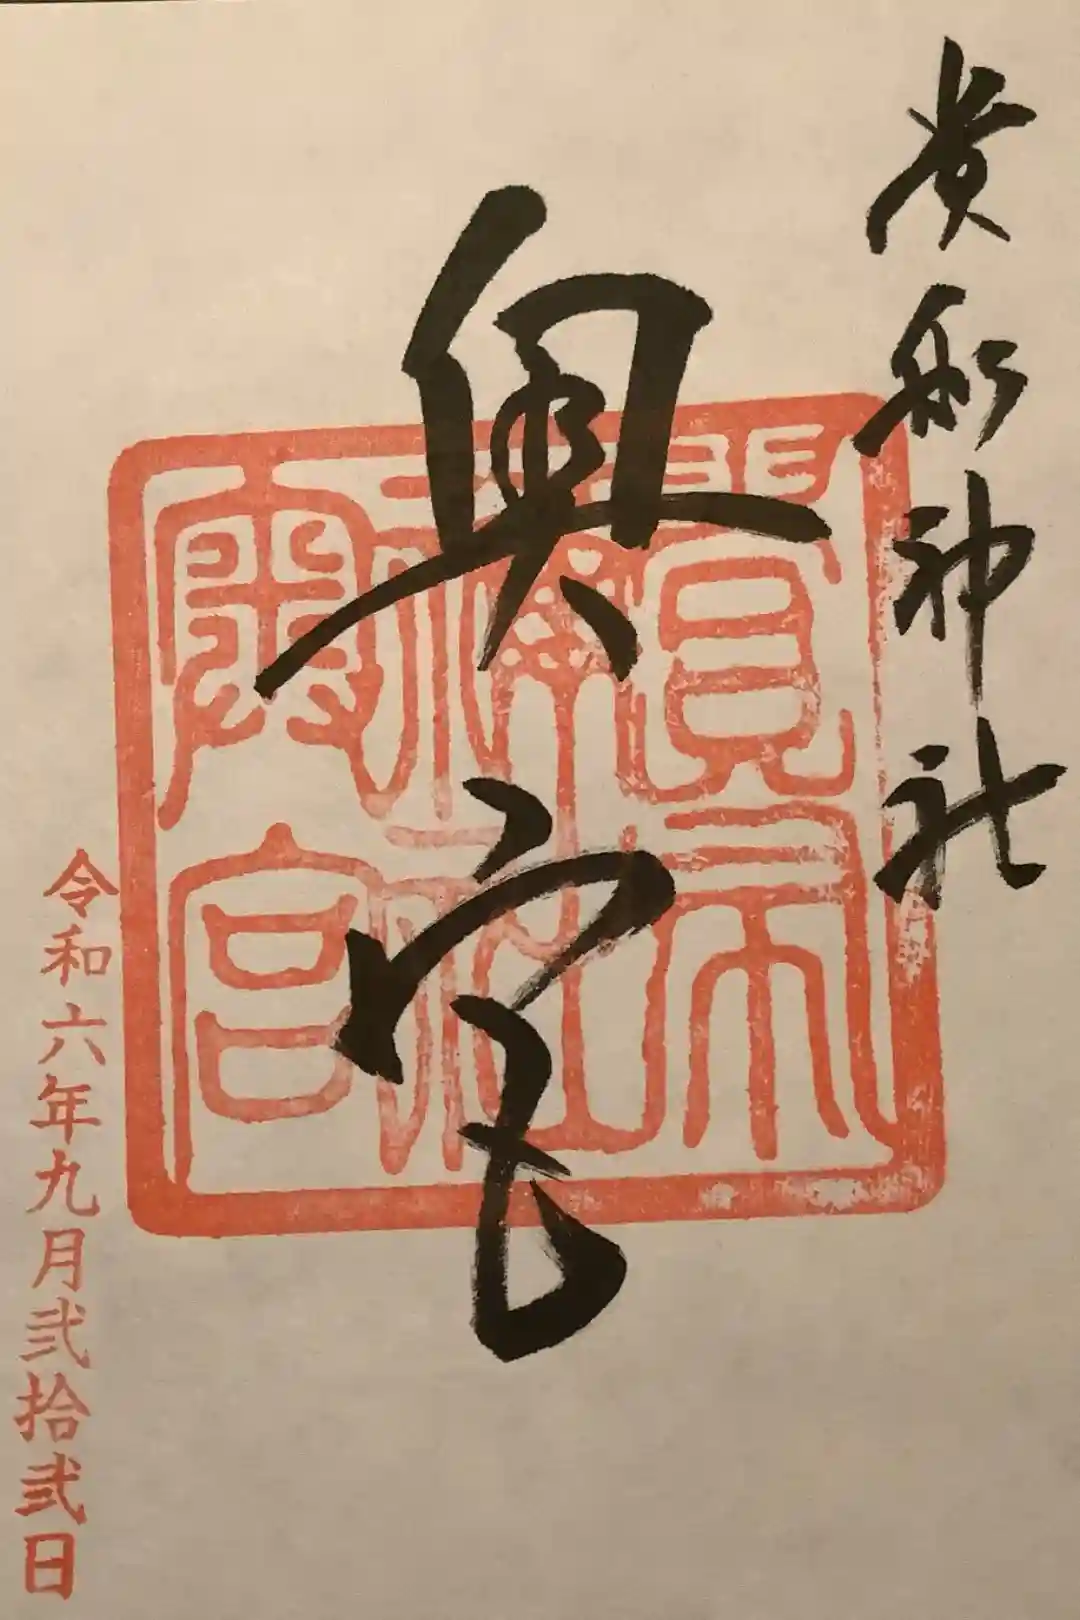 貴船神社
奥宮
貴布
禰社
奥宮
令和六年九月弐拾弐日